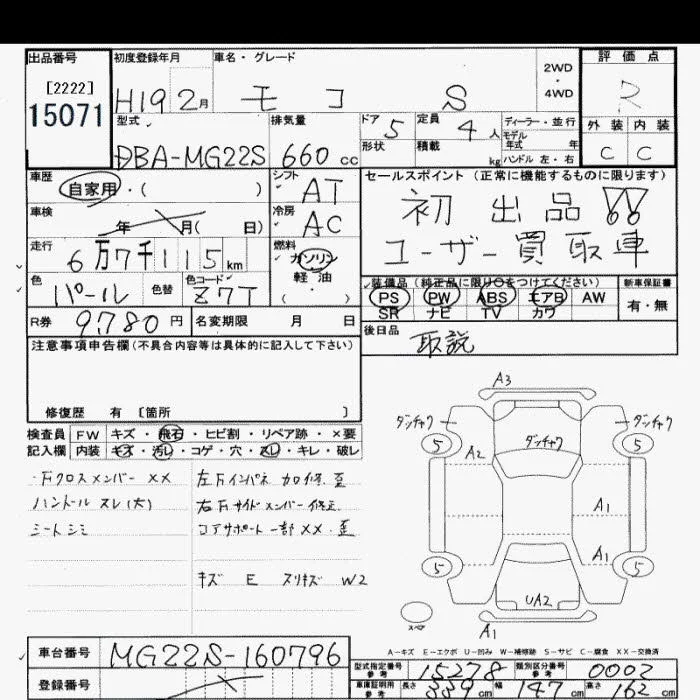 出品番号 初度登録年月 車名・グレード 評価点
[2222]
15071
H19 2月 モコ S 2WD・4WD R
型式 排気量 ドア 5 定員 4人 ディーラー・並行 外装 内装
モデル年式 年
DBA-MG22S 660cc 形状 積載 kg ハンドル 左・右 C C
車歴 シフト セールスポイント(正常に機能するものに限ります)
自家用・( ) AT 初出品!!
車検 年 月( 日) 冷房 AC ユーザー買取車
走行 燃料
6万7千115km ガソリン
色 色替 色コード 軽油 装備品(純正品に限り○をつけてください) 新車保証書
パール Z7T ( ) PS PW ABS エアB AW 有・無
SR ナビ TV カワ
R券 9,780円 名変期限 月 日 後日品
取説
注意事項申告欄(不具合内容等は具体的に記入して下さい)
修復歴 有 〔箇所 〕
A3
検査員 FW キズ・飛石・ヒビ割・リペア跡・×要
記入欄 内装 キズ・汚レ・コゲ・穴・スレ・キレ・破レ
ダンチャク ダンチャク ダンチャク
5 5
A2
・Fクロスメンバー XX 左Fインパネ 加修、歪
ハンドル スレ(大) 右Fサイドメンバー修正、
シートシミ コアサポート一部XX・歪
A1
A1
5 5
キズ E スリキズ W2
UA2
スペア
A1
A-キズ E-エクボ U-凹み W-補修跡 S-サビ C-腐食 XX-交換済
車台番号 MG22S-160796
型式指定番号 参考 15278 類別区分番号 参考 0002
登録番号
車庫証明用 参考 長さ 339cm 幅 147cm 高さ 162cm